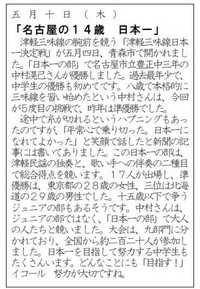 五月十日(木)
「名古屋の14歳 日本一」
津軽三味線の腕前を競う「津軽三味線日本
一決定戦」が五月四日、青森市で開かれまし
た。「日本一の部」で名古屋市立豊正中三年の
中村滉己さんが優勝しました。過去最年少で、
中学生の優勝も初めてです。八歳で本格的に
三味線を習い始めたという中村さんは、今回
が5度目の挑戦で、昨年は準優勝でした。
途中で糸が切れるというハプニングもあっ
たのですが、「平常心で乗り切った。日本一に
なれてよかった」と笑顔で話したと新聞の記
事には書いてありました。この日本一の部は、
津軽民謡の独奏と、歌い手への伴奏の二種目
で総合得点を競います。17人が出場し、準
優勝は、東京都の28歳の女性、三位は北海
道の29歳の男性でした。十五歳以下で争う
ジュニアの部もあるそうです。中村さんは、
ジュニアの部ではなく、「日本一の部」で大人
の人たちと競いました。大会は、九部門に分
かれており、全国から約二百二十人が参加し
ました。日本一を目指して努力する中学生も
たくさんいます。どんなことにも「目指す!」
イコール 努力が大切ですね。